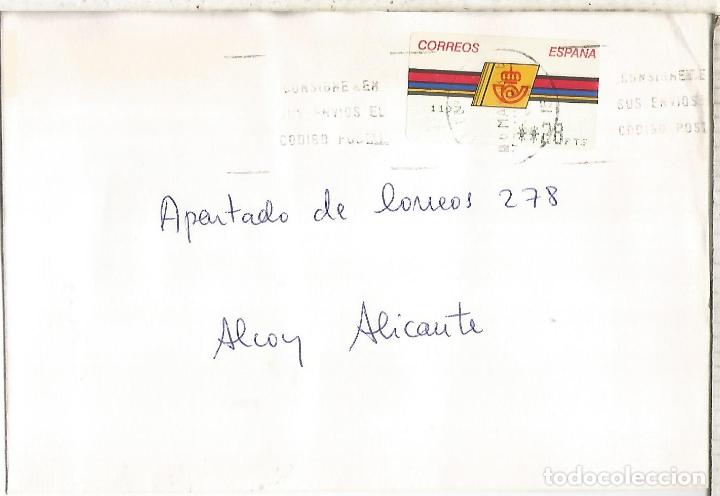 CORREOS ESPAÑA
CONSIGNE EN
SUS ENVIOS EL
CODIGO POSTAL
1102
**28
PTS
CONSIGNE E
SUS ENVIOS
CODIGO POST
Apartado de Correos 278
Alcoy Alicante
todocoleccion